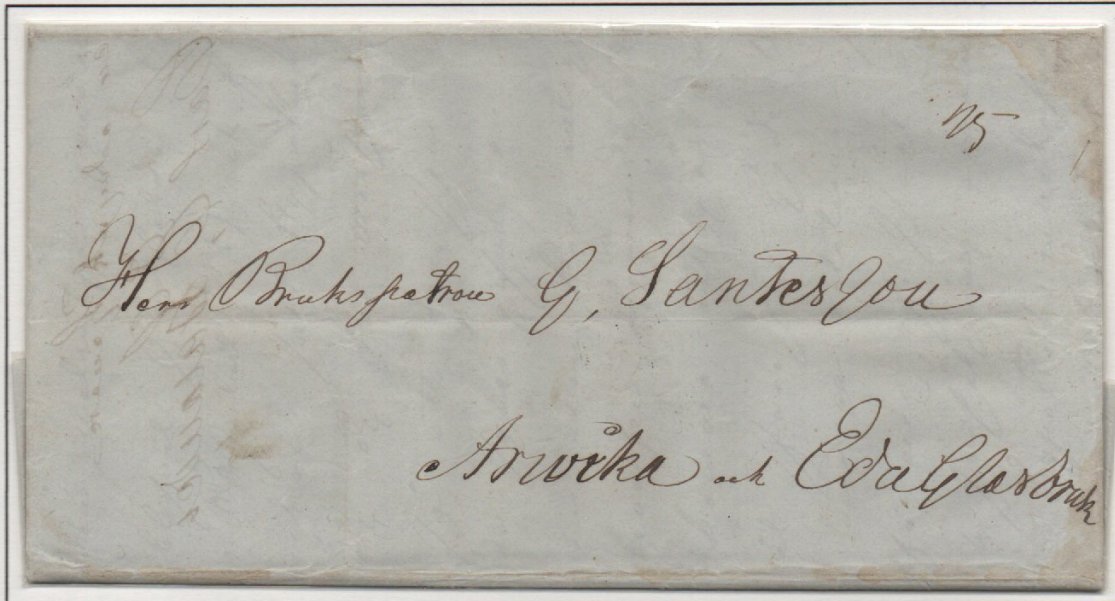 Herr Brukspatron G, Santesson
Arwika och Eda Glasbruk